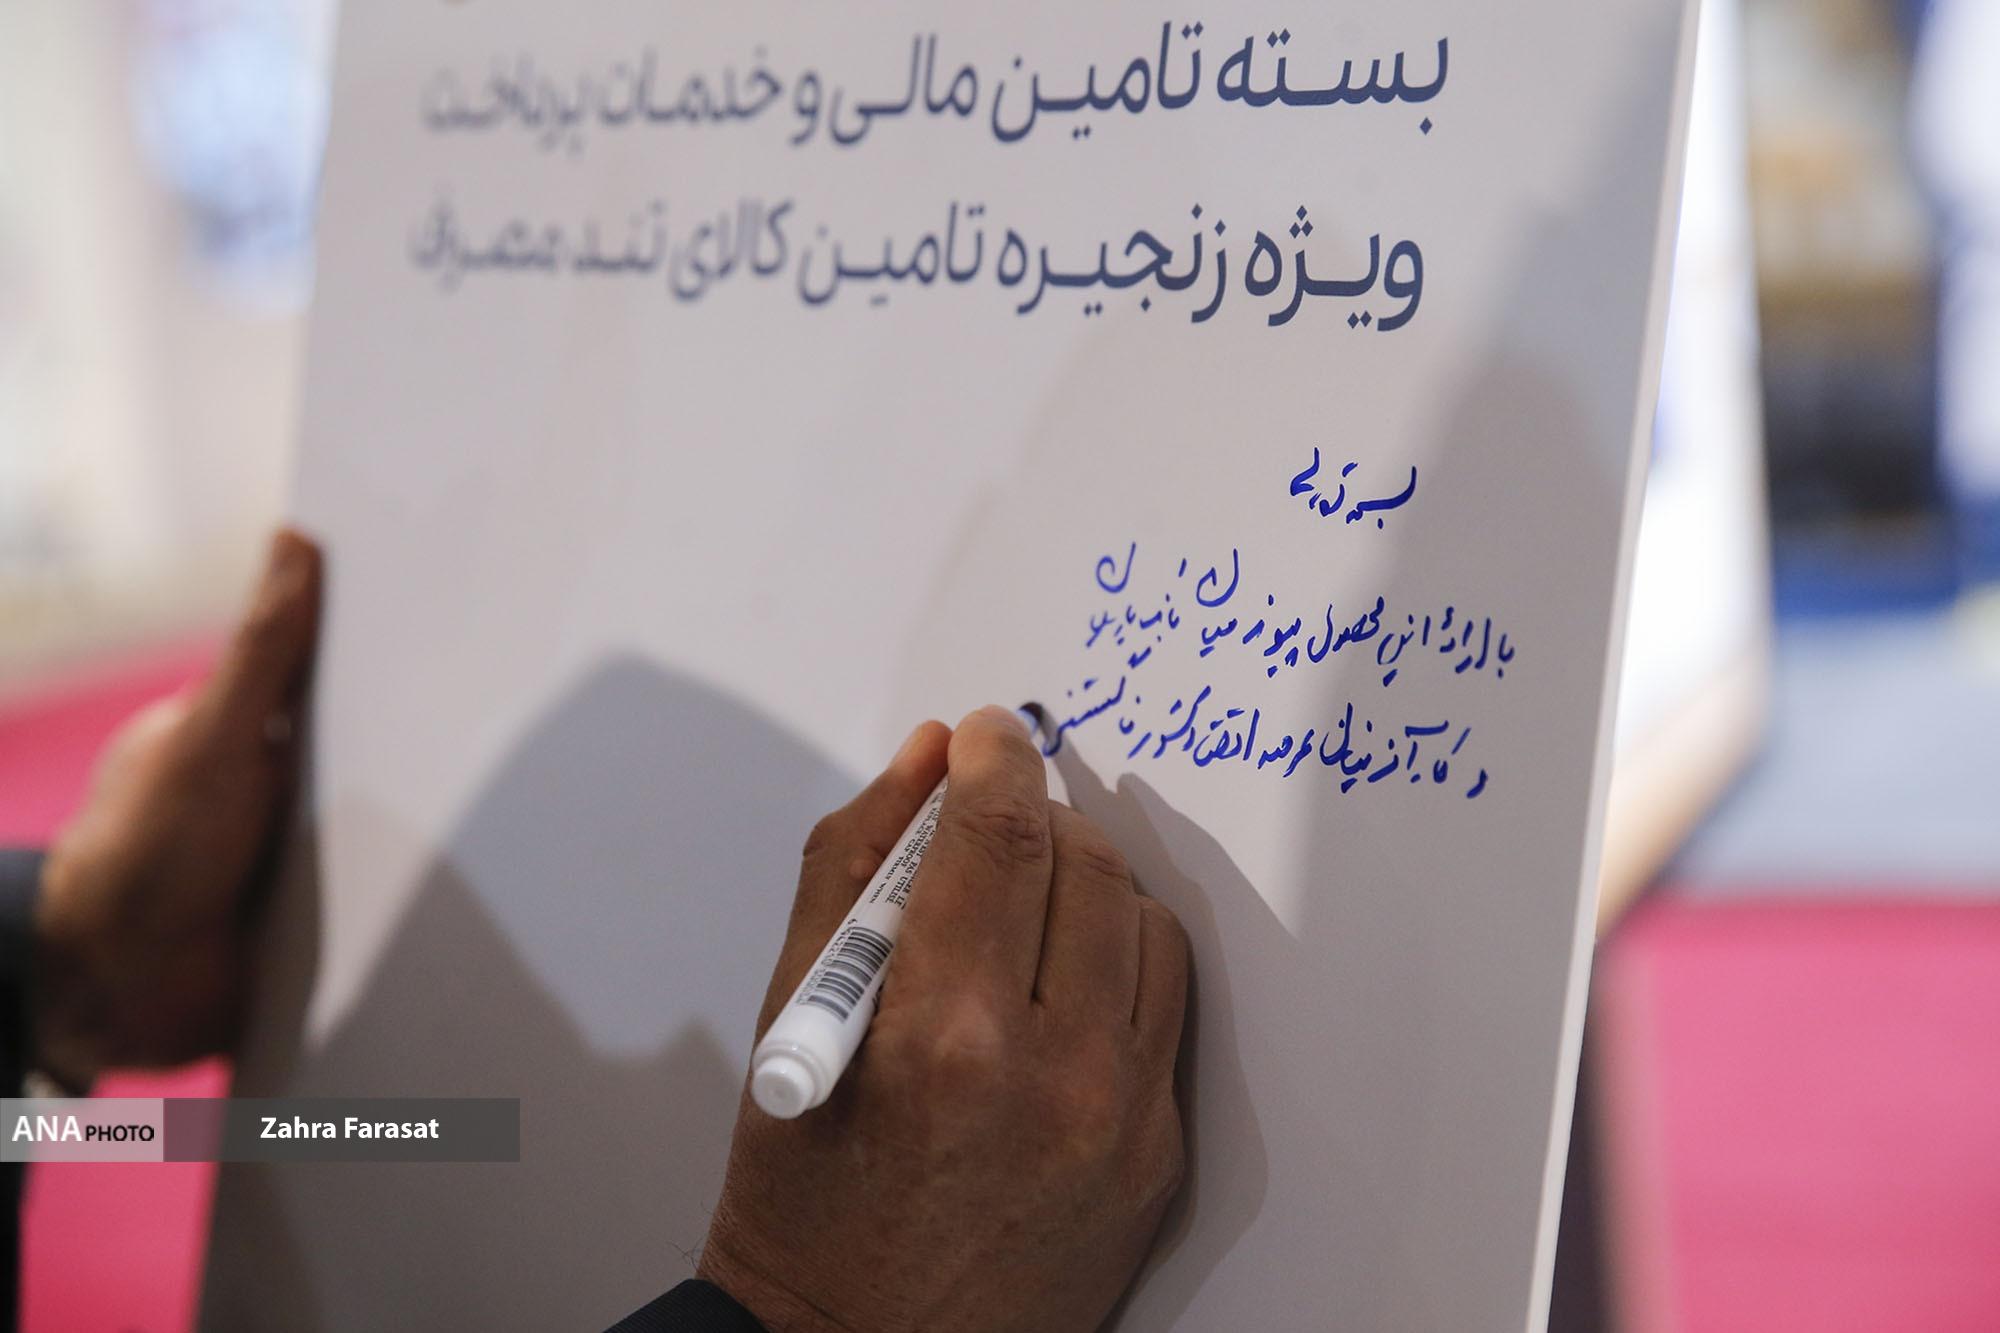 بسته تامین مالی و خدمات پرداخت
ویژه زنجیره تامین کالای تند مصرف
بسمه تعالی
با ارائه این محصول پیوند میان
و کارآفرینان عرصه اقتصاد کشور
ANA PHOTO
Zahra Farasat